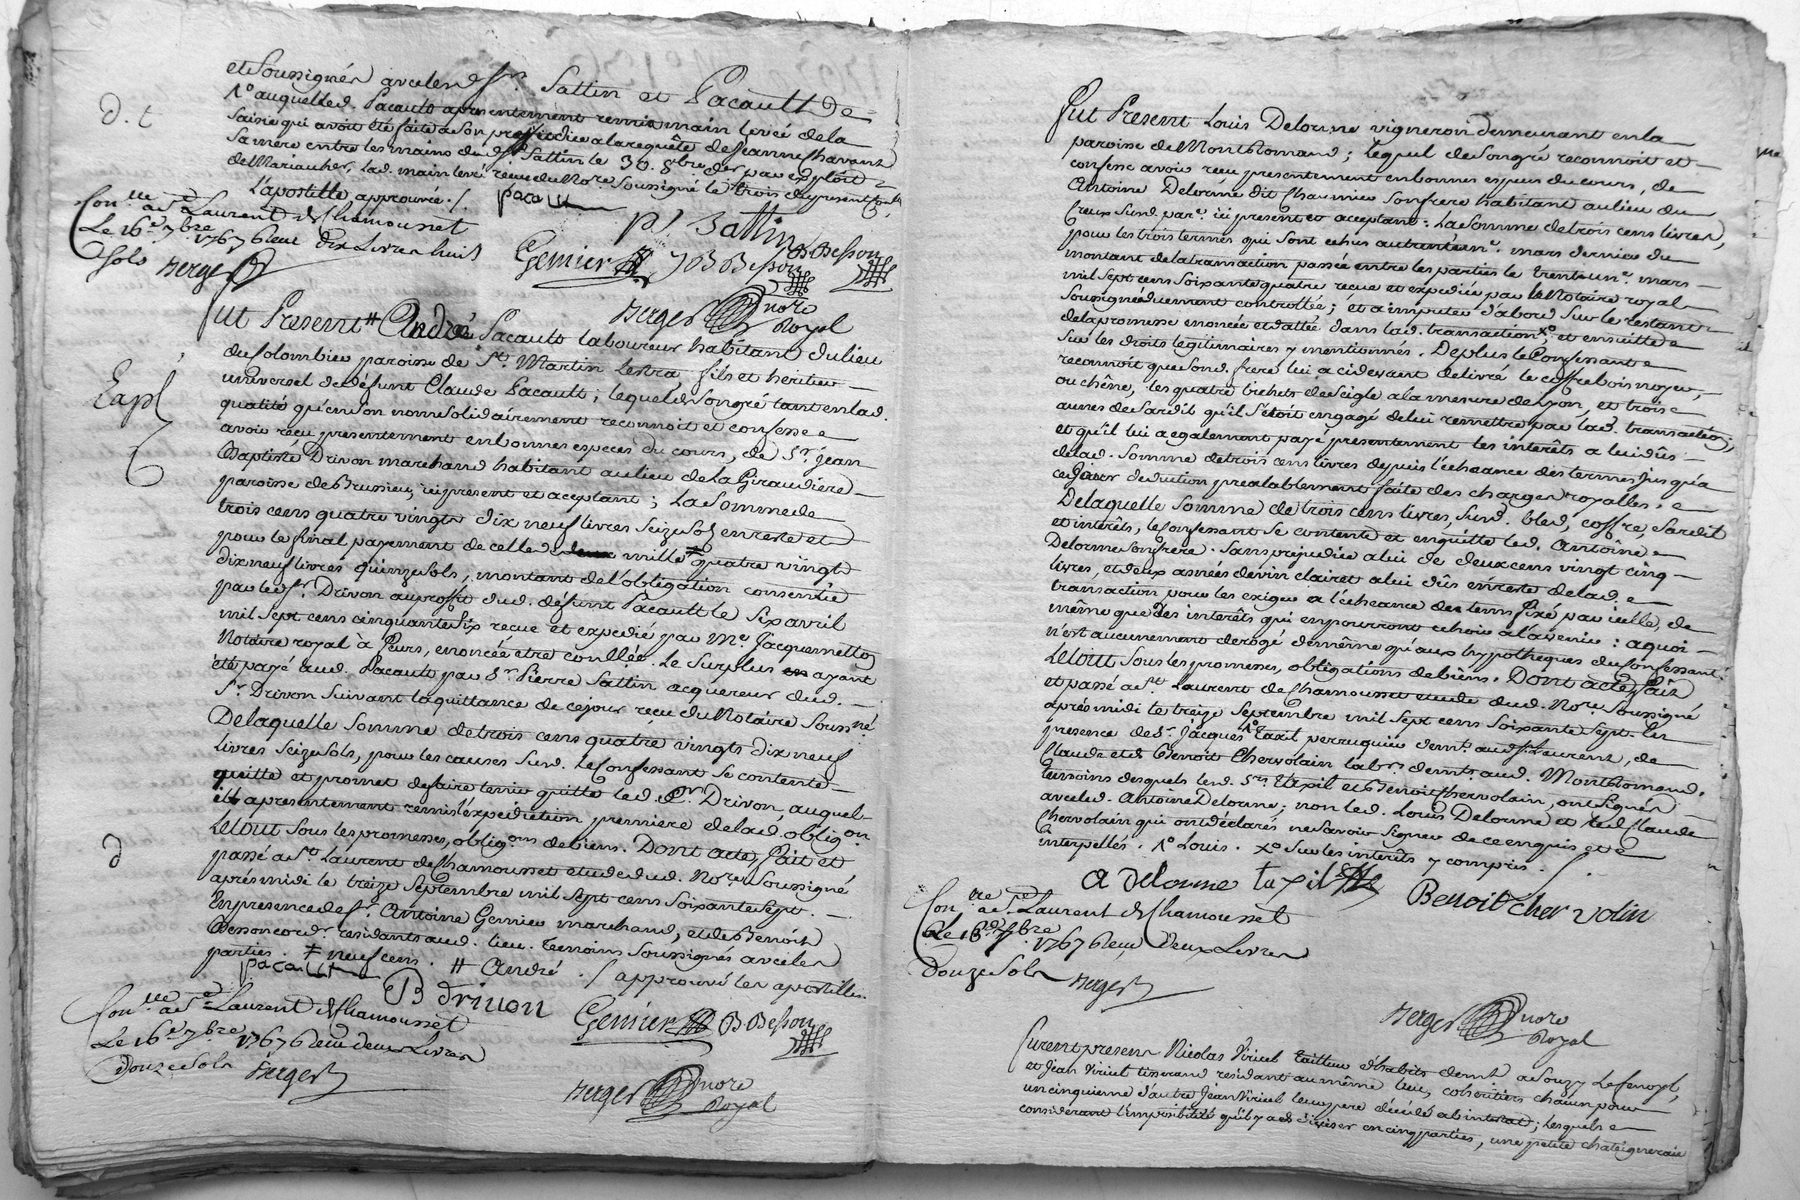 d. t
et Soussignés avec led. Sr. Sattin et Pacault De =
1° auquel led. Pacault a presentement remis main levée de la
Saisie qui avoit été faite a Son prejudice a la requête de Jeanne Chavant
Sa mere entre les mains dud. Sr. Sattin le 30. 8bre. der par exploit
de Mariaucher, lad. main levé recue du Nore. Soussigné le trois du present
L'apostille approuvée ./.
pacault
P. Sattin
Con.lle a St. Laurent de Chamousset
Le 16e 7bre 1767 6 Reçu Dix Livres huit
Sols Berger
Gemier
J B Besson
B Besson
Berger nore
Royal
Expl
Fut Present # André Pacault laboureur habitant du lieu
du Colombier paroisse de St. Martin Lestra fils et heritier
universel de deffunt Claude Pacault ; lequel de Son gré tant en lad.
qualité qu'en Son nom Solidairement reconnoit et confesse
avoir reçu presentement en bonnes especes du cours, de Sr. Jean
Baptiste Drivon marchand habitant au lieu de La Giraudiere
paroisse de Brussieu, ici present et aceptant ; La Somme de
trois cens quatre vingts dix neuf livres Seize Sols en reste et
pour le final payement de celle de mille ‡ quatre vingt
dix neuf livres quinze Sols, montant de l'obligation consentie
par led. Sr. Drivon au proffit dud. défunt Pacault le Six avril
mil Sept cens cinquante Six recue et expedié par Me. Jacquemetton
Notaire royal à Feurs, enoncée etre conllée. Le Surplus ayant
été payé aud. Pacault par Sr. Pierre Sattin acquereur dud.
Sr. Drivon Suivant la quittance de ce jour reçu du Notaire Soussné
De laquelle Somme de trois cens quatre vingts dix neuf
livres Seize Sols, pour les causes Susd. Le Confessant Se contente
quitte et promet de faire tenir quitte led. Sr. Drivon, auquel
il a presentement remis l'expedition premiere de lad. obligon.
Le tout Sous les promesses, obligons de biens. Dont acte, fait et
d
passé a St. Laurent de Chamousset etude dud. Nore. Soussigné
après midi le treize Septembre mil Sept cens Soixante Sept.
En presence de Sr. Antoine Gemier marchand, et de Benoit
Besson cordr. residants aud. lieu. temoins Soussignés avec les
parties. ‡ neuf cens. # André. / approuvé les apostilles.
pacault
B Drivon
Con.lle a St. Laurent de Chamousset
Le 16e 7bre 1767 6 Reçu deux Livres
Douze Sols Berger
Gemier
B. Besson
Berger nore
Royal
Fut Present Louis Delorme vigneron demeurant en la
paroisse de Montromand ; lequel de Son gré reconnoit et
confesse avoir reçu presentement en bonnes espices du cours, de
Antoine Delorme dit Chaumier Son frere habitant au lieu du
Creux Susd. parse. ici present et aceptant : La Somme de trois cens livres,
pour les trois termes qui Sont echus au trente une. mars dernier du
montant de la transaction passée entre les parties le trente une. mars
mil Sept cens Soixante quatre recue et expediée par le Notaire royal
Soussigné duement controllée ; et a imputer d'abord Sur le restant
de la promesse enoncée et dattée dans lad. transaction, xo et ensuitte
Sur les droits legitimaires y mentionnés. De plus le Confessant
reconnoit que Sond. frere lui a cidevant delivré le coffre bois noyer,
ou chêne, les quatre bichets de Seigle a la mesure de Lyon, et trois
aunes de Sardit qu'il S'étoit engagé de lui remettre par lad. transaction ;
et qu'il lui a egalement payé presentement les intérêts a lui dûs
de lad. Somme de trois cens livres depuis l'écheance des termes jusqu'à
ce jour deduction prealablement faite des charges royalles.
De laquelle Somme de trois cens livres, Susd. bled, coffre, Sardit
et intérêts, le Confessant Se contente et en quitte led. Antoine
Delorme Son frere. Sans prejudice a lui de deux cens vingt cinq
livres, et deux asnées de vin clairet a lui dûs en reste de lad.
transaction pour les exiger a l'écheance des tems fixé par icelle, de
même que des interêts qui en pourront echoir à l'avenir : a quoi
n'est aucunement derogé de même qu'aux hypotheques du Confessant.
Le tout Sous les promesses, obligations de biens. Dont acte, fait
et passé a St. Laurent de Chamousset etude dud. Nore. Soussigné
après midi le treize Septembre mil Sept cens Soixante Sept. En
presence de Sr. Jacques 1° taxil perruquier demt. aud. St. Laurent, de
Claude et de Benoit Chervolain labrs. demts. aud. Montromand.
temoins desquels led. Srs. taxil et Benoit Chervolain, ont Signés
avec led. Antoine Delorme ; non led. Louis Delorme et led. Claude
Chervolain qui ont déclarés ne Savoir Signer de ce enquis et
interpellés. 1° Louis. xo Sur les interêts y compris. /.
A delorme
taxil
Benoit cher volin
Con.lle a St. Laurent de Chamousset
Le 16e 7bre 1767 6 Reçu Deux Livres
Douze Sols Berger
Berger nore
Royal
Furent presens Nicolas Viricel tailleur d'habits demt. a Souzy Le Fenoyl,
et Jean Viricel tisserand residant au même lieu, cohéritiers chacun pour
un cinquieme d'autre Jean Viricel leur pere décédé abintestat ; Lesquels
considerant l'impossibilité qu'il y a de diviser en cinq parties, une petite chateigneraie